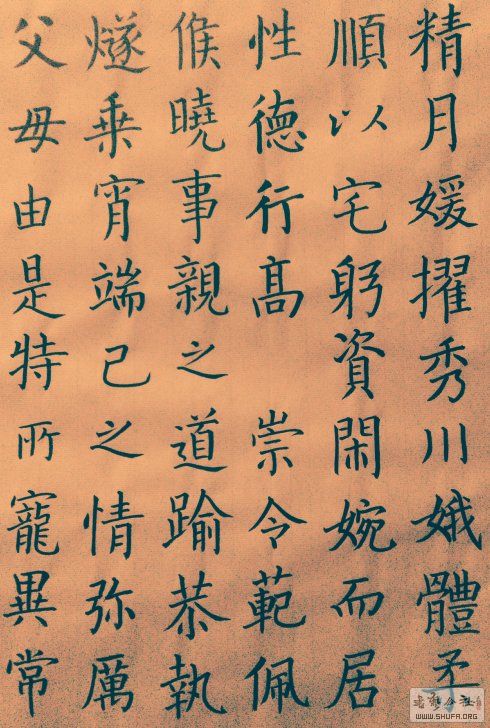 精月媛擢秀川娥體柔
順以宅躬資閑婉而居
性德行高崇令範佩
候曉事親之道踰恭執
燧乘宵端己之情弥厲
父母由是特所寵異常
WWW.SHUFA.ORG